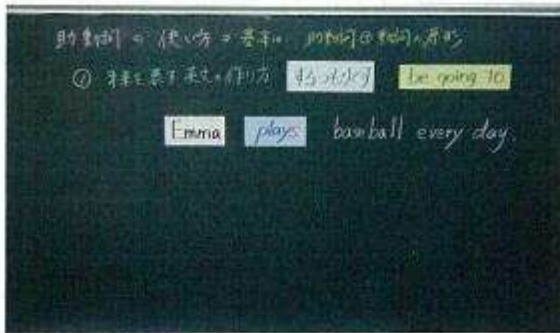 助動詞の使い方の基本は 助動詞+動詞の原形
① 未来を表す英文の作り方 するつもりです be going to
Emma plays baseball every day.